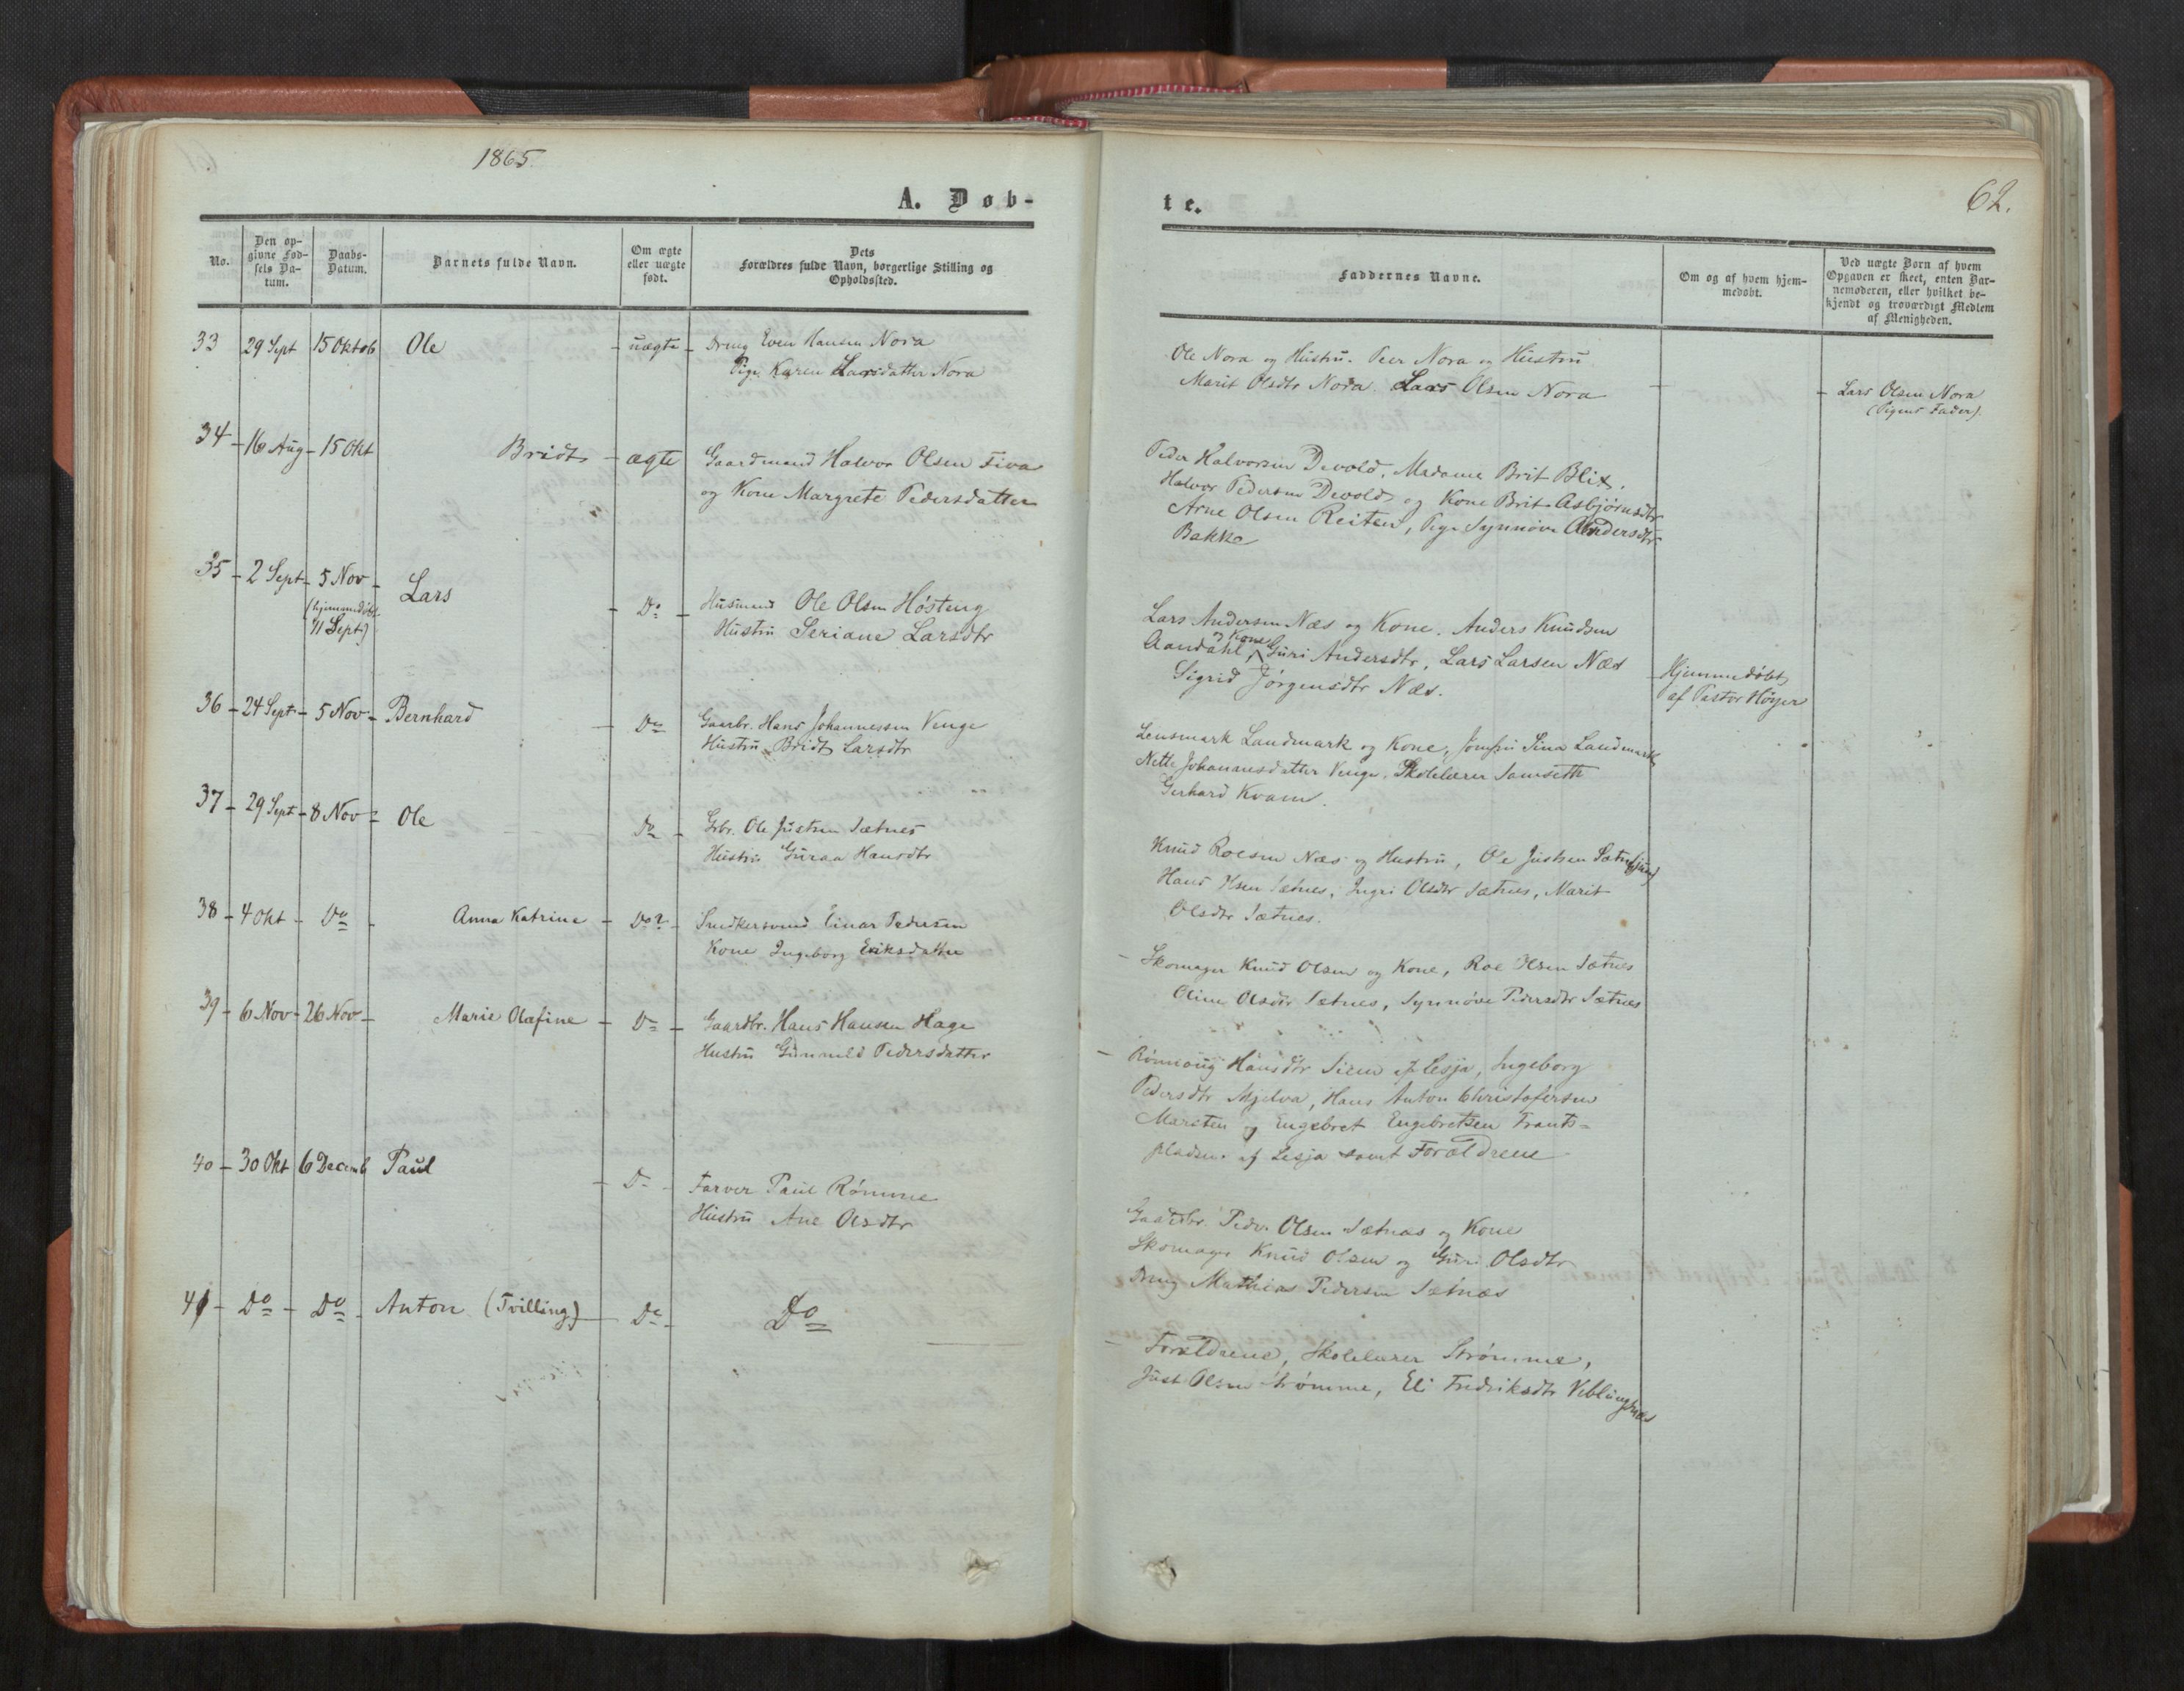 1865.
A. Døb-
No.
Den op-
givne Fød-
sels Da-
tum.
Daabs-
Datum.
Barnets fulde Navn.
Om ægte
eller uægte
født.
Dets
Forældres fulde Navn, borgerlige Stilling og
Opholdssted.
33 29 Sept 15 Oktob Ole uægte Dreng Even Hansen Nora
Pige Karen Larsdatter Nora
34 16 Aug 15 Okt Bridt ægte Gaardmand Halvor Olsen Fiva
og Kone Margrete Pedersdatter
35 2 Sept 5 Nov Lars Do Husmand Ole Olsen Høsteng
(hjemmedøbt
11 Sept) Hustru Seriane Larsdtr
36 24 Sept 5 Nov Bernhard Do Gaarbr. Hans Johannessen Venge
Hustru Bridt Larsdtr
37 29 Sept 8 Nov Ole Do Grbr. Ole Justsen Sætnes
Hustru Guraa Hansdtr
38 4 Okt Do Anna Katrine Do? Snedkersvend Einar Pedersen
Kone Ingeborg Eriksdatter
39 6 Nov 26 Nov Marie Olafine Do Gaardbr. Hans Hansen Hage
Hustru Gunnild Pedersdatter
40 30 Okt 6 Decemb Paul Do Farver Paul Rømme
Hustru Ane Olsdtr
41 Do Do Anton (Tvilling) Do Do
te.
62.
Faddernes Navne.
Om og af hvem hjem-
medøbt.
Ved uægte Børn af hvem
Opgaven er skeet, enten Bar-
nemoderen, eller hvilket be-
kjendt og troværdigt Medlem
af Menigheden.
Ole Nora og Hustru. Peer Nora og Hustru
Marit Olsdtr Nora. Lars Olsen Nora
Lars Olsen Nora
(Pigens Fader).
Peder Halvorsen Devold, Madame Brit Blix.
Halvor Pedersen Devold og Kone Brit Asbjørnsdtr
Arne Olsen Reiten, Pige Synnøve Andersdtr
Bakke
Lars Andersen Næs og Kone. Anders Knudsen
Aandahl, og Kone Guri Andersdtr, Lars Larsen Næs
Sigrid Jørgensdtr Næs.
Hjemmedøbt
af Pastor Høyer
Lensmark Landmark og Kone, Jomfru Sina Landmark
Nette Johannesdatter Venge. Skolelærer Samseth
Gerhard Kvam.
Knud Roesen Næs og Hustru, Ole Justsen Sætnes (jun)
Hans Olsen Sætnes, Ingri Olsdtr Sætnes, Marit
Olsdtr Sætnes.
Skomager Knud Olsen og Kone, Roe Olsen Sætnes
Oline Olsdtr Sætnes, Synnøve Pedersdtr Sætnes
Rønnoug Hansdtr af Lesja, Ingeborg
Pedersdtr Mjelva, Hans Anton Christofersen
Marsten og Engebret Engebretsen Frants-
pladsen af Lesja samt Forældrene
Gaardbr. Peder Olsen Sætnæs og Kone
Skomager Knud Olsen og Guri Olsdtr
Dreng Mathias Pedersen Sætnæs
Forældrene, Skolelærer Strømme,
Just Olsen Strømme, Eli Fredriksdtr Veblungsnæs